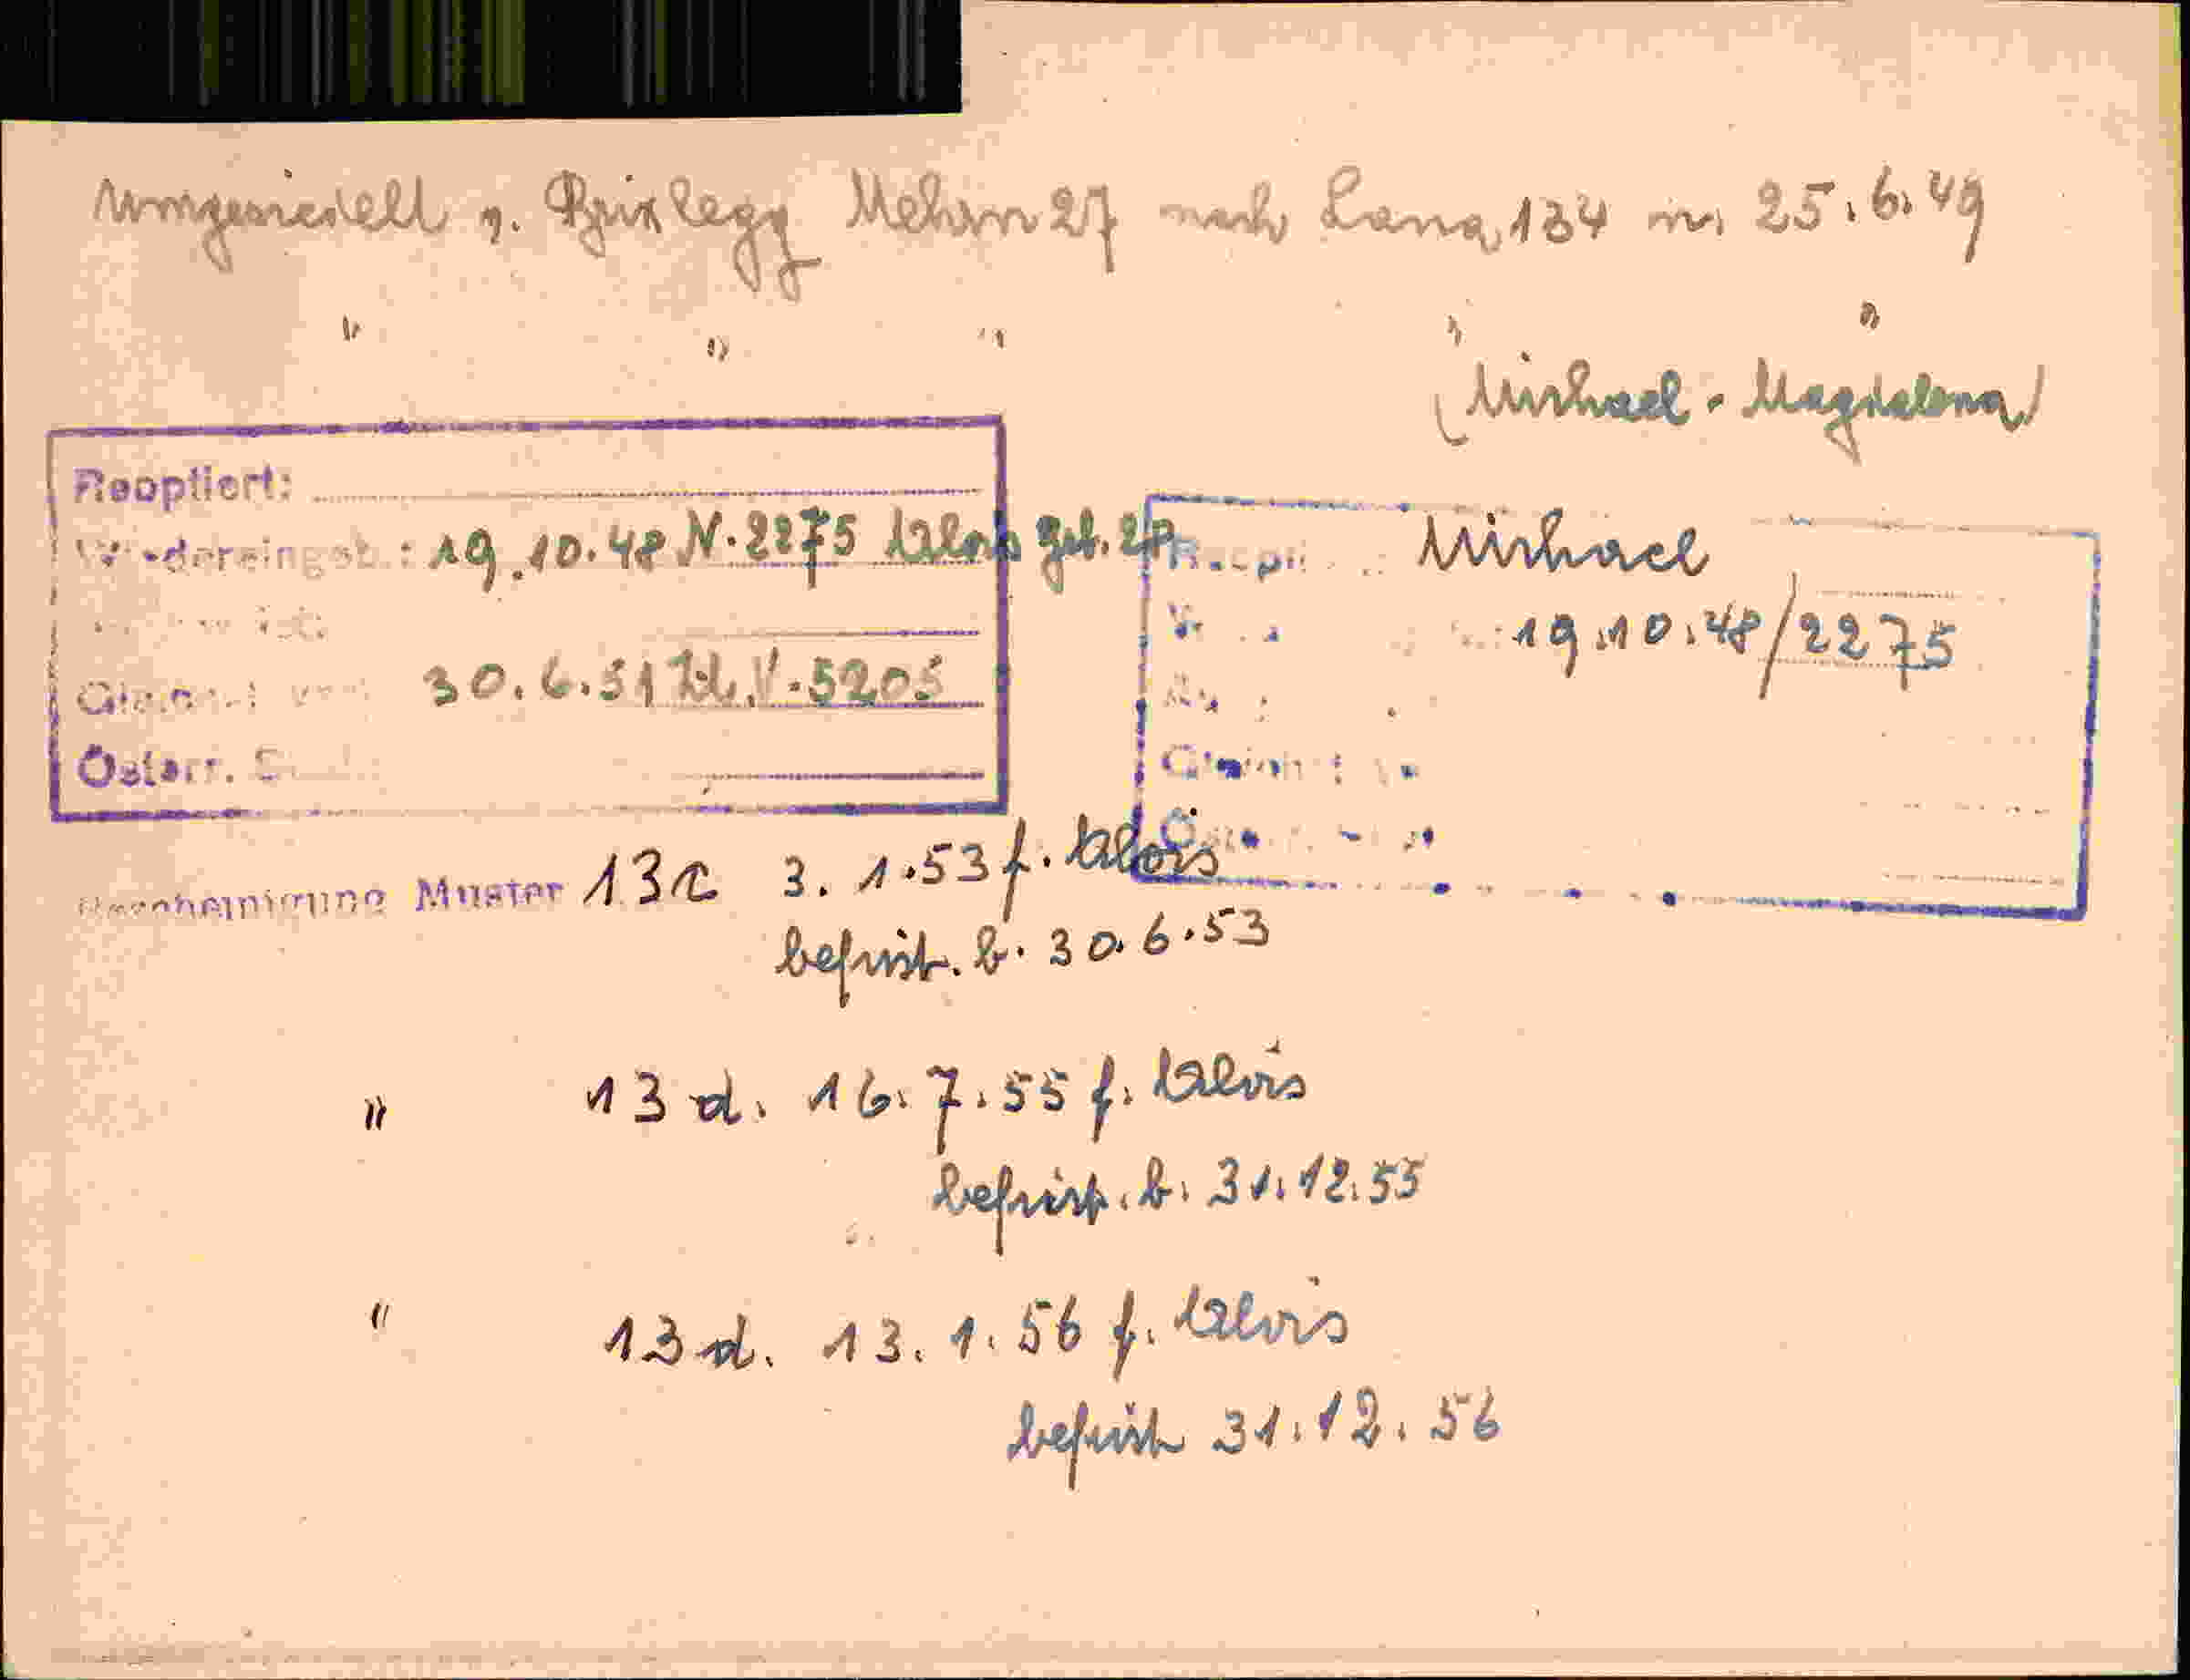 umgesiedelt v. Brixlegg Mehrn 27 nach Lana 134 m. 25.6.49
" " " " "
(Michael - Magdalena)
Reoptiert:
Wiedereingeb.: 19.10.48 N. 2275 Alois geb. 27
30.6.51 Zl. V. 5205
Österr.
Michael
19.10.48/2275
Bescheinigung Muster 13c 3.1.53 f. Alois
befrist. b. 30.6.53
" 13 d. 16.7.55 f. Alois
befrist. b. 31.12.55
" 13 d. 13.1.56 f. Alois
befrist 31.12.56